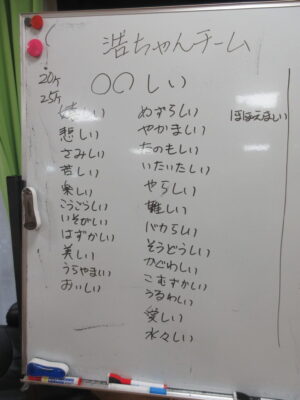 浩ちゃんチーム
20ケ
25ケ
○○しい
嬉しい
悲しい
さみしい
苦しい
楽しい
こうごうしい
いそがしい
はずかしい
美しい
うらやましい
おいしい
めずらしい
やかましい
たのもしい
いたいたしい
やらしい
難しい
バカらしい
そうどうしい
かぐわしい
こむずかしい
うるわしい
愛しい
水々しい
ほほえましい